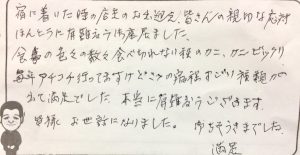 宿に着いた時の店主のお出迎え、皆さんの親切な応対
ほんとうに有難えう御座ました。
食事の色々の数々食べ切れない程のカニ、カニビックリ
毎年アチコチ行ってますけどこの
出て満足でした。本当に有難とうございます。
皆様 お世話になりました。 までした。
満足